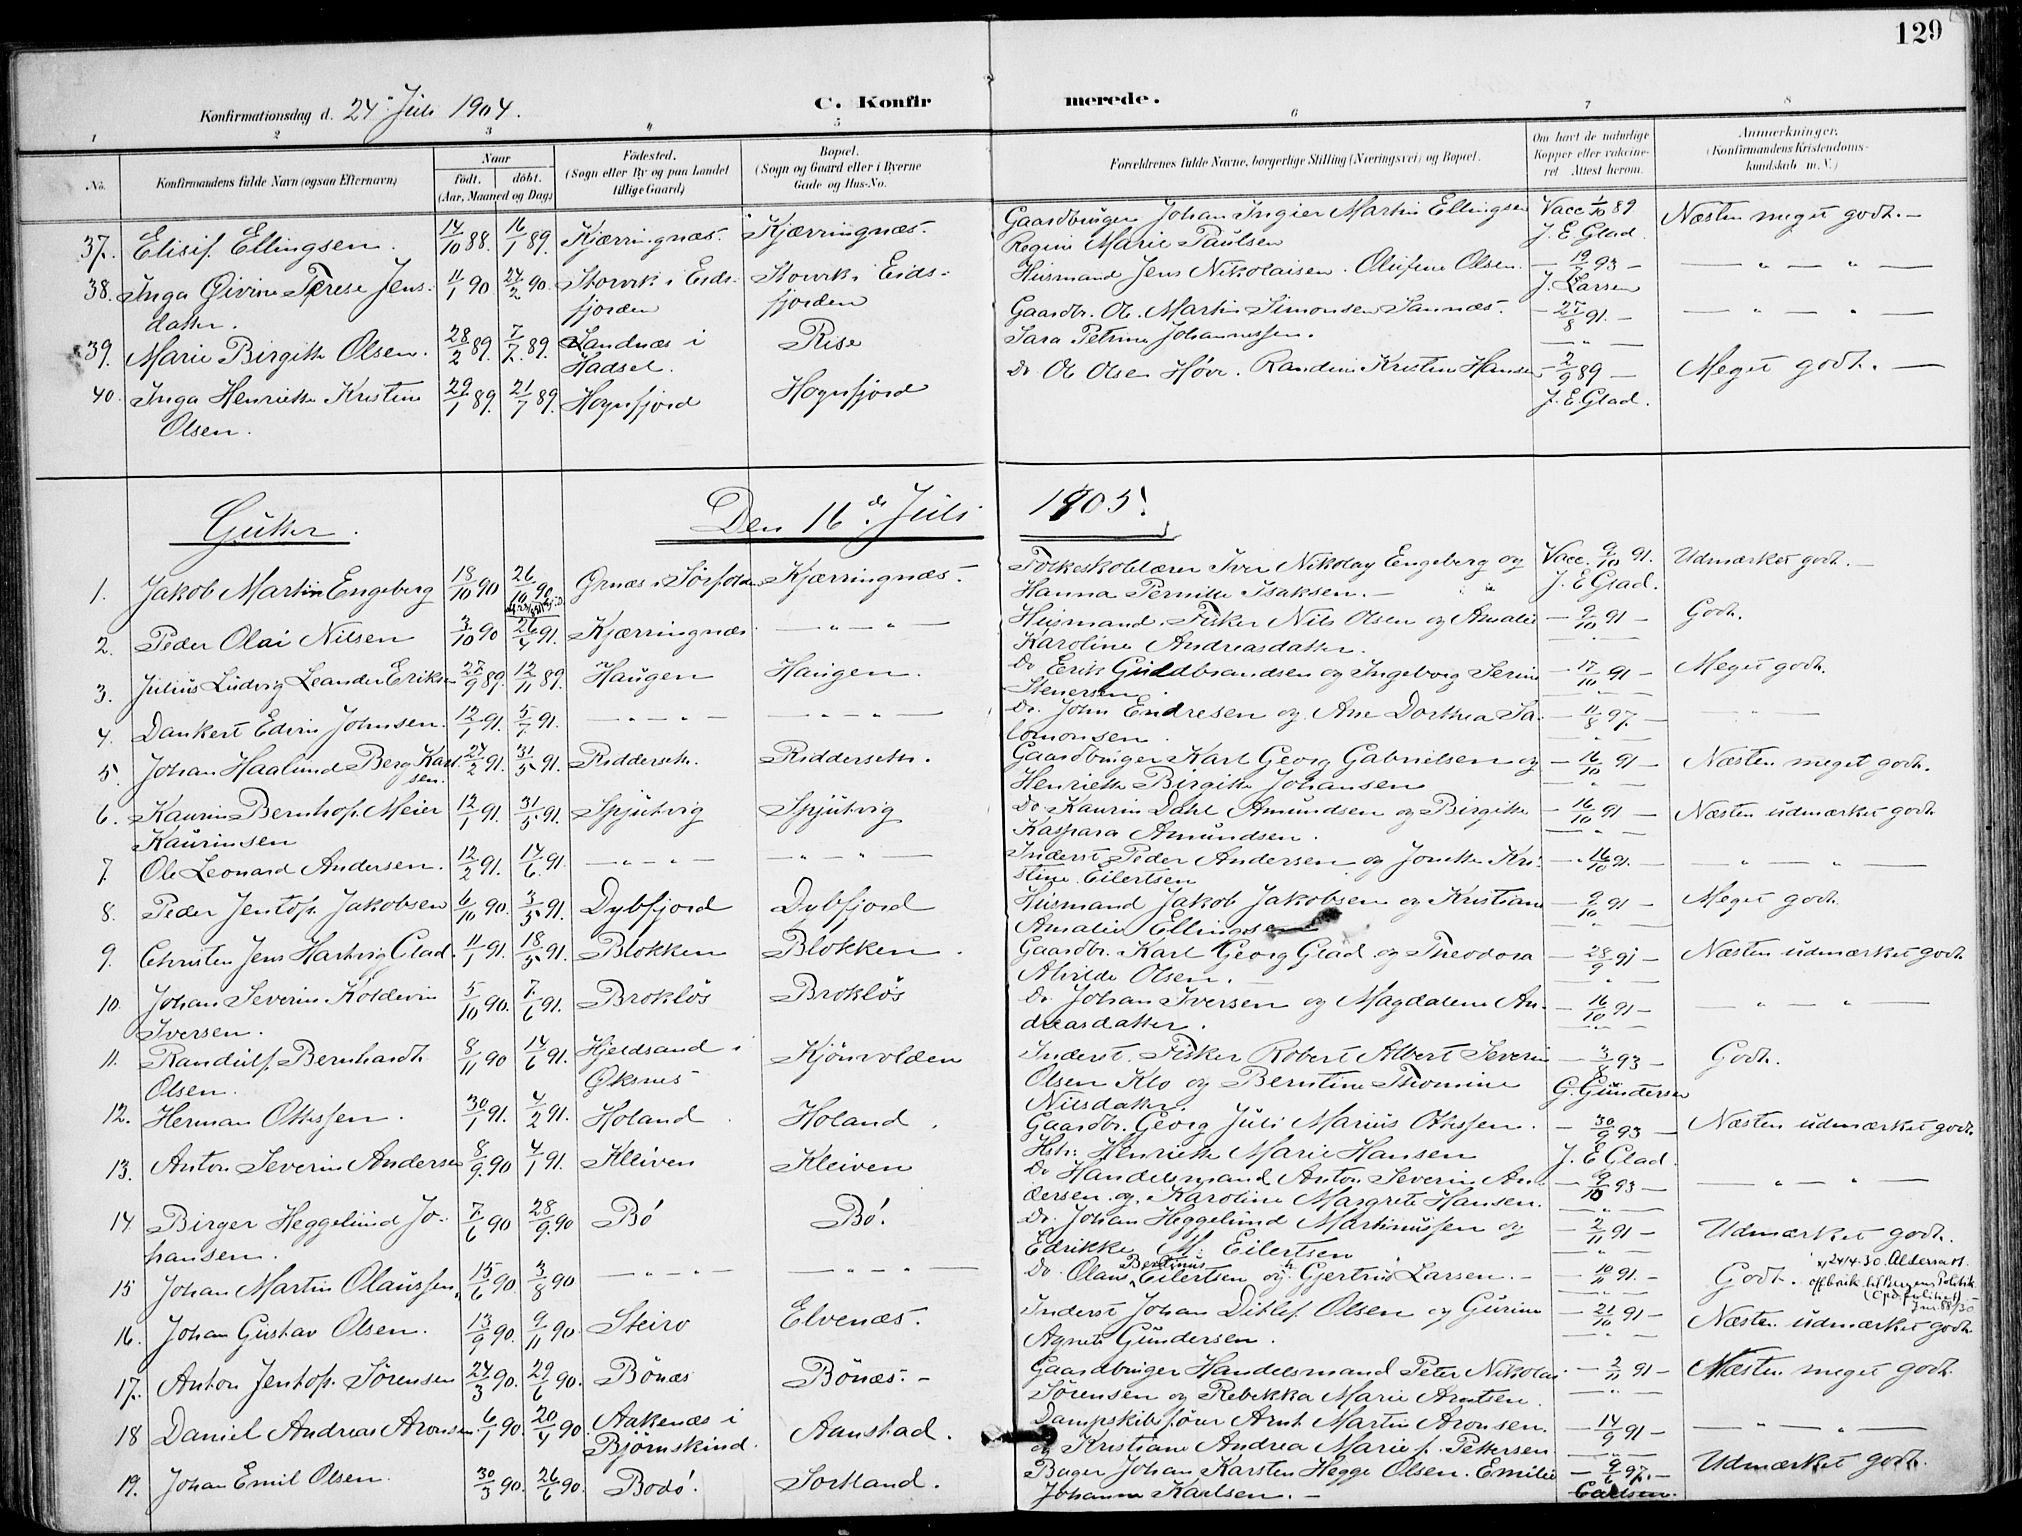 129
Konfirmationsdag d. 24de Juli 1904.
C. Konfirmerede.
1 2 3 4 5 6 7 8
No.
Konfirmandens fulde Navn (ogsaa Efternavn)
Naar
født. døbt.
(Aar, Maaned og Dag)
Fødested.
(Sogn eller By og paa Landet
tillige Gaard)
Bopæl.
(Sogn og Gaard eller i Byerne
Gade og Hus-No.
Forældrenes fulde Navne, borgerlige Stilling (Næringsvei) og Bopæl.
Om havt de naturlige
Kopper eller vaccine-
ret Attest herom.
Anmærkninger.
(Konfirmandens Kristendoms-
kundskab m. V.)
37. Elisif Ellingsen. 14/10 88. 16/1 89. Kjærringnæs. Kjærringnæs. Gaardbruger Johan Ingier Martin Ellingsen Vacc 1/10 89 Næsten meget godt. —
Regine Marie Paulsen J. E. Glad.
38. Inga Øivine Terese Jens- 11/1 90 24/2 90. Storvik i Eids- Storvik i Eids- Husmand Jens Nikolaisen. Olufine Olsen. — 19/7 93 — — „ — „ —
datter. fjorden fjorden J. Larsen
39. Marie Birgitte Olsen. 28/2 89. 7/7. 89. Landnæs i Rise Gaardbr. Ol. Martin Simonsen Sannæs. — 27/8 91. — — „ — „ —
Hadsel. Sara Petrine Johannessen. — „ —
40. Inga Henriette Kristine 29/1 89. 21/7 89. Hognfjord Hognfjord Do Ol Olsen Høve. Randine Kristine Hansen — 2/9 89 — Meget godt. —
Olsen. J. E. Glad.
Gutter. Den 16de Juli 1905!
1. Jakob Martin Engeberg 18/10 90 26/10 90 Ørnæs i Sørfolden Kjærringnæs. Folkeskolelærer Iver Nikolay Engeberg og Vacc. 9/10 91. Udmærket godt. —
Hanna Pernille Isaksen. — J. E. Glad.
2. Peder Olai Nilsen 3/10 90 26/4 91. Kjærringnæs — „ — „ — Husmand Fisker Nils Olsen og Amalie — 9/10 91 — Godt.
Karoline Andreasdatter. — „ —
3. Julius Ludvig Leander Eriksen 27/9 89. 12/11 89. Haugen Haugen. Do Erik Guldbrandsen og Ingeborg Serine — 17/10 91 — Meget godt.
Stenersen. — „ —
4. Dankert Edvin Johnsen. 12/1 91. 5/7 91. — „ — „ — — „ — „ — Do. John Endresen og Ane Dorthea Sa- — 11/8 97. — — „ —
lomonsen. — „ —
5. Johan Haalund Berg Karl- 24/2 91. 31/5 91. Riddersete. Riddersete. Gaardbruger Karl Georg Gabrielsen og — 16/10 91 — Næsten meget godt.
sen. Henriette Birgitte Johansen — „ —
6. Kaurin Bernhof. Meier 12/1 91. 31/5 91. Spjutvig Spjutvig Do Kaurin Dahl Amundsen og Birgitte — 16/10 91 — Næsten udmærket godt
Kaurinsen Kaspara Amundsen. — „ —
7. Ole Leonard Andersen. 12/2 91. 14/6 91. — „ — „ — — „ — „ — Inderst Peder Andersen og Jonette Kri- — 16/10 91. — — „ — „ —
stine Eilertsen
8. Peder Jentof. Jakobsen 6/10 90. 3/5 91. Dybfjord Dybfjord Husmand Jakob Jakobsen og Kristiane — 9/10 91 — Meget godt.
Amalie Ellingsen — „ —
9. Christen Jens Hartvig Glad. 11/1 91. 18/5 91. Blokken Blokken. Gaardbr. Karl Georg Glad og Theodora — 28/9 91 — Næsten udmærket godt
Alvilde Olsen. — — „ —
10. Johan Severin Koldevin 5/10 90. 7/6 91. Brokløs Brokløs Do. Johan Iversen og Magdalene An- — 16/10 91 — — „ — „ —
Iversen. dreasdatter. — „ —
11. Randulf Bernhardt 8/11 90 14/6 91. Hjeldsand i Kjønvolden Inderst. Fisker Robert Albert Severin — 3/8 93 — Godt.
Olsen. Øksnes Olsen Klo og Berntine Thomine G. Gundersen
Nilsdatter.
12. Herman Ottesen. 30/1 91. 4/2 91. Holand Holand. Gaardbr. Georg Juli Marius Ottesen. — 30/9 93 — Næsten udmærket godt.
Hstr. Henriette Marie Hansen J. E Glad.
13. Anton Severin Andersen 8/9. 90 4/1 91. Kleiven Kleiven Do Handelsmand Anton Severin An- — 9/10 93 — — „ — „ —
dersen og. Karoline Margrete Hansen. — „ —
14 Birger Heggelund Jo- 7/6 90 28/9. 90 Bø Bø. Do. Johan Heggelund Martinussen og — 2/11 91 — Udmærket godt.
hansen. Edrikke M. Eilertsen — „ —
15 Johan Martin Olaussen. 15/6 90. 3/8 90 — „ — „ — — „ — „ — Do Olaus Bertinus Eilertsen og Gjertrud Larsen. — — 10/11 91. — Godt.
24/4-30. Aldersatt.
16. Johan Gustav Olsen. 13/9 90. 9/11 90. Steiro Elvenæs. Inderst Johan Ditlef Olsen og Gurine — 21/10 91 — Næsten udmærket godt
Agnete Gundersen. — „ —
17. Anton Jentof. Sørensen 24/3 90. 29/6 90. Bønæs Bønæs. — Gaardbruger Handelsmand Peter Nikolai — 2/11 91 — Næsten meget godt.
Sørensen og Rebekka Marie Arntsen. — „ —
18 Daniel Andreas Aronsen 6/1 90. 20/4 90. Aakenæs i Aanstad. Dampskibsfører Arnt Martin Aronsen. — 14/9 91 — — „ — „ —
Bjørnskind. og Kristiane Andrea Marie f. Pettersen — „ —
19. Johan Emil Olsen. 30/3 90. 26/6 90. Bodø. Sortland. Bager Johan Karsten Hegge Olsen. Emilie — 9/6 97. — Udmærket godt.
Johanne Karlsen. — Carlsen.